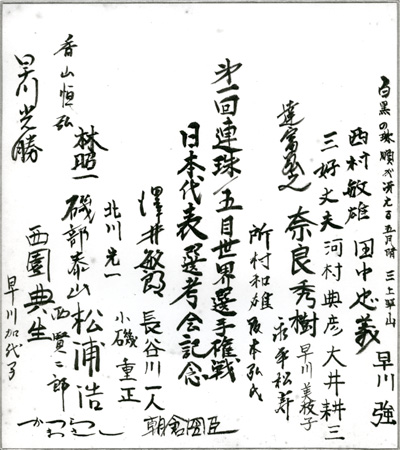 三上 華山
早川 強
西村敏雄
田中忠義
三好丈夫
河村典彦
大井耕三
達富弘之
奈良秀樹
早川美枝子
所村和雄
坂本弘武
永平松寿
第一回連珠/五目世界選手権戦
日本代表選考会記念
澤井敏郎
長谷川一人
朝倉国臣
北川光一
小磯重正
林照一
磯部泰山
松浦浩
香山恒弘
西園典生
西賢二郎
早川光勝
早川加代子